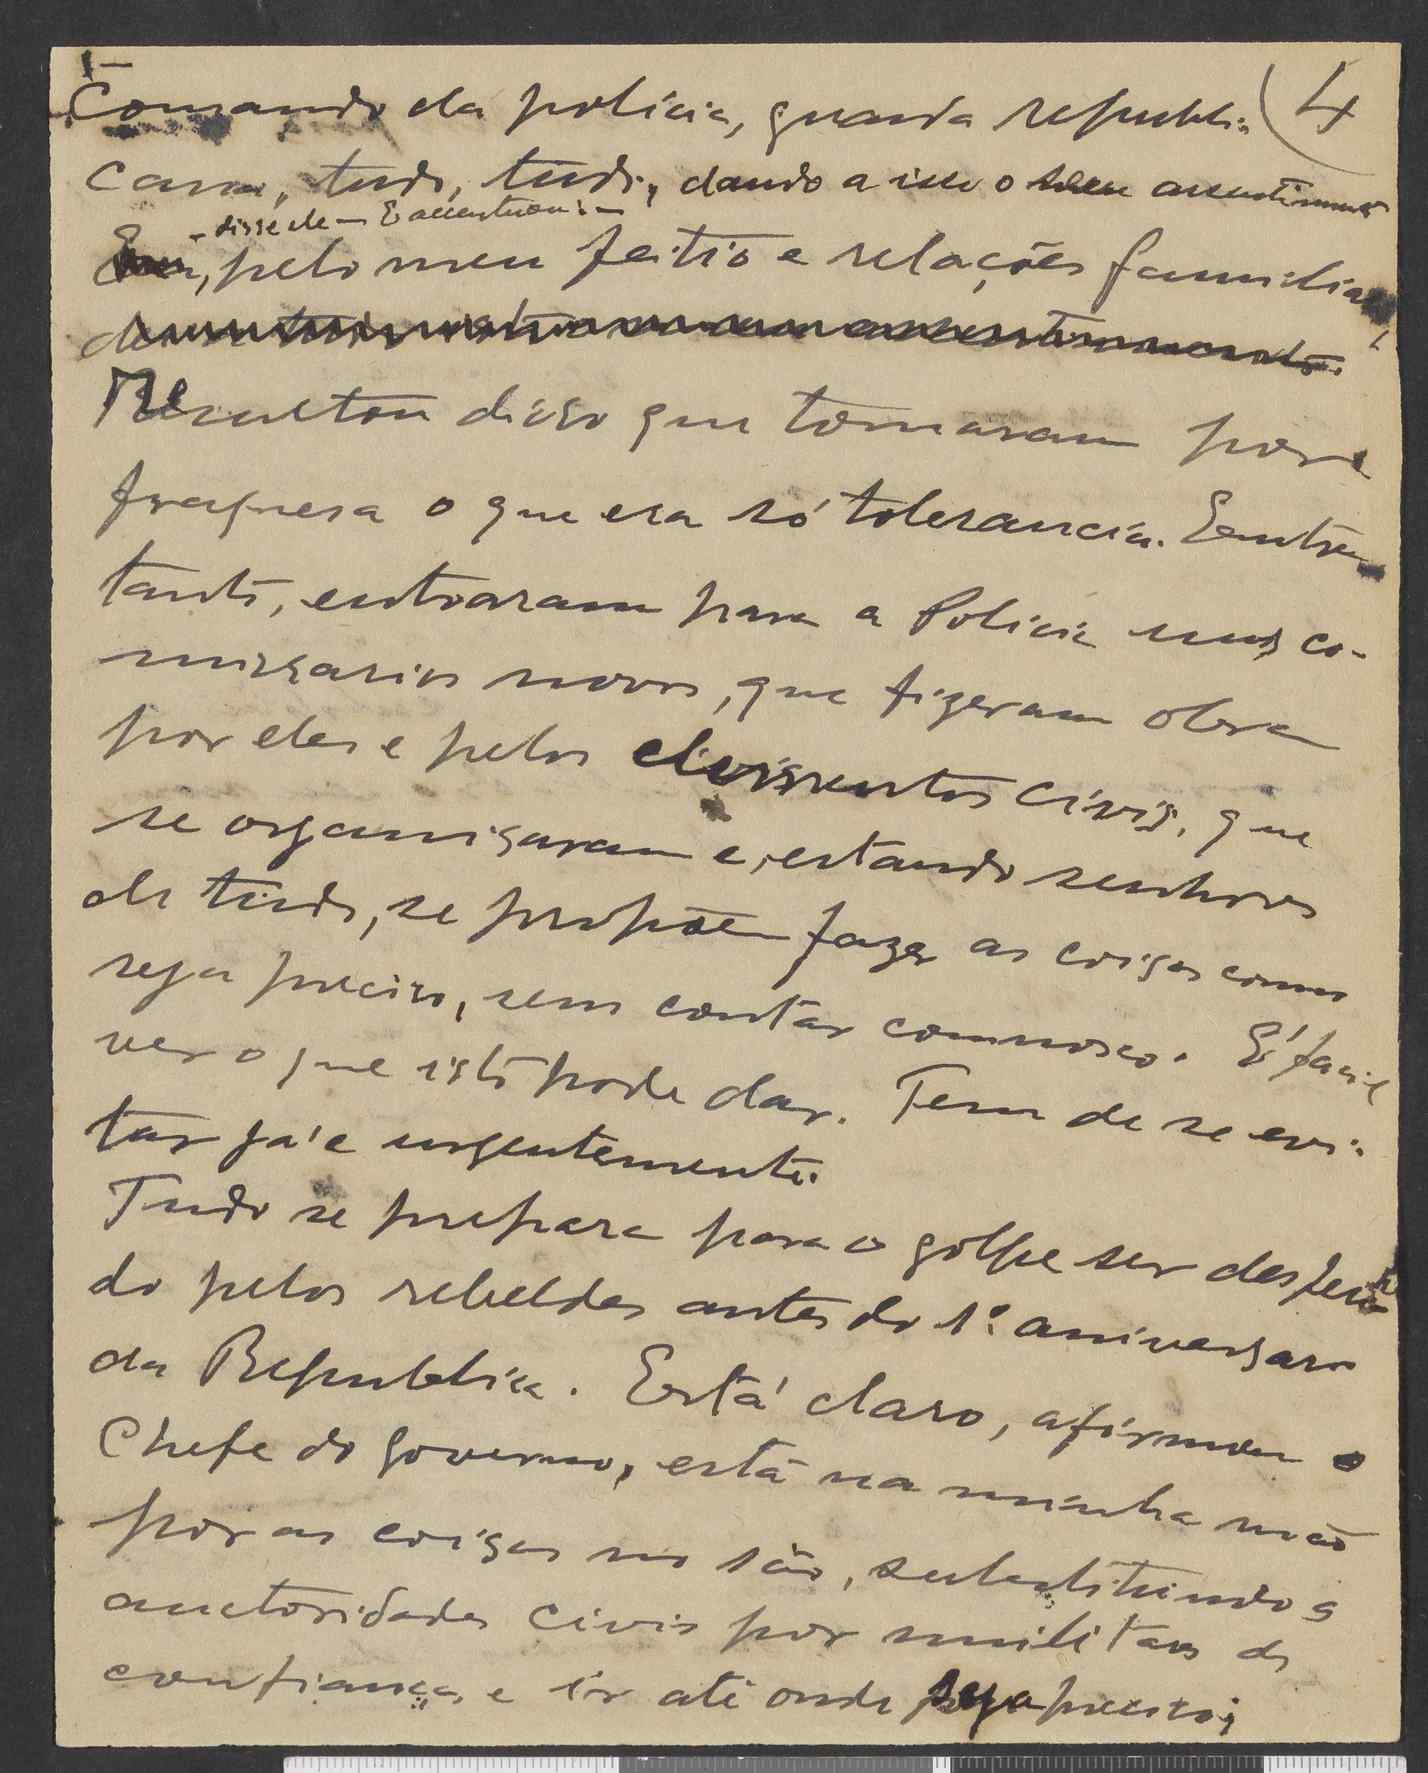 4
Comando da policia, guarda republi-
cana, tudo, tudo, dando a isso o seu assentimento
- disse ele - E accentuou: -
Eu, pelo meu feitio e relações familiares,
Resultou disso que tomaram por
fraquesa o que era só tolerancia. Entre-
tanto, entraram para a Policia uns co-
missarios novos, que fizeram obra
por eles e pelos elementos civis, que
se organisaram e, estando senhores
de tudo, se propõem fazer as coisas como
seja preciso, sem contar comnosco. É facil
ver o que isto pode dar. Tem de se evi-
tar já e urgentemente.
Tudo se prepara para o golpe ser desfecha
do pelos rebeldes antes do 1º aniversario
da Republica. Está claro, afirmou o
Chefe do governo, está na minha mão
por as coisas no são, substituindo as
auctoridades civis por militares de
confiança, e ir até onde seja preciso;